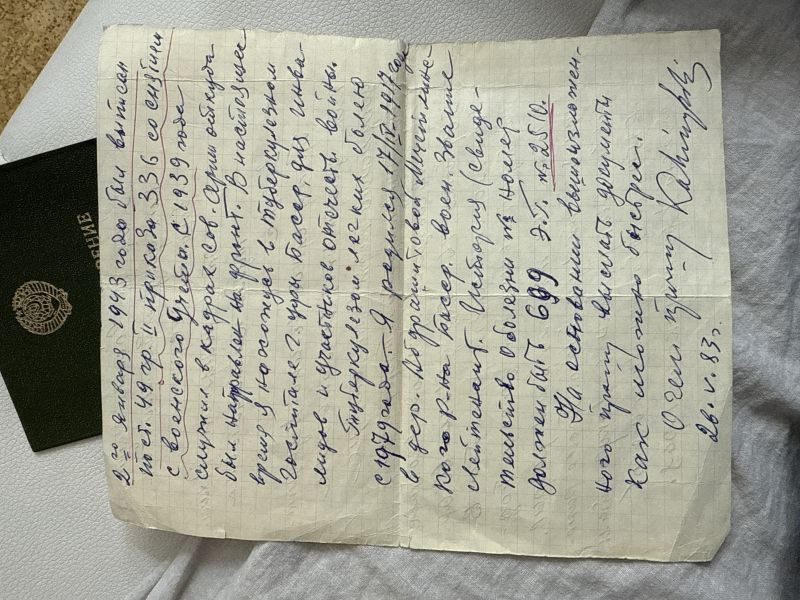 2го января 1943 года был выписан
по ст. 49 гр. II приказа 336 со снятием
с военского учёта. С 1939 года
служил в кадрах сов. Армии откуда
был направлен на фронт. В настоящее
время я нахожусь в туберкулезном
госпитале г. для инва-
лидов и участников отечеств. войны.
Туберкулезом легких болею
с 1979 года. Я родился 17/II-1917 года
в дер.
кого р-на воен. звание
лейтенант. История (свиде-
тельство о болезни № номер
должен быть 699 Э.Г. № 2510.
На основании вышеизложен-
ного прошу выслать документы
как можно быстрее.
О чем и прошу
26.V.83г.
ЕНИЕ